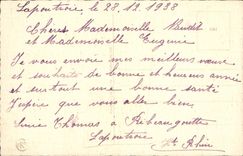 Lapoutroie le 28.12.1938
Chères Mademoiselle
et Mademoiselle Eugénie
Je vous envoie mes meilleurs vœux
et souhaits de bonne et heureuse année
et surtout une bonne santé
J'espère que vous allez bien
Thomas à Ribeaugoutte
Lapoutroie
Ht Rhin